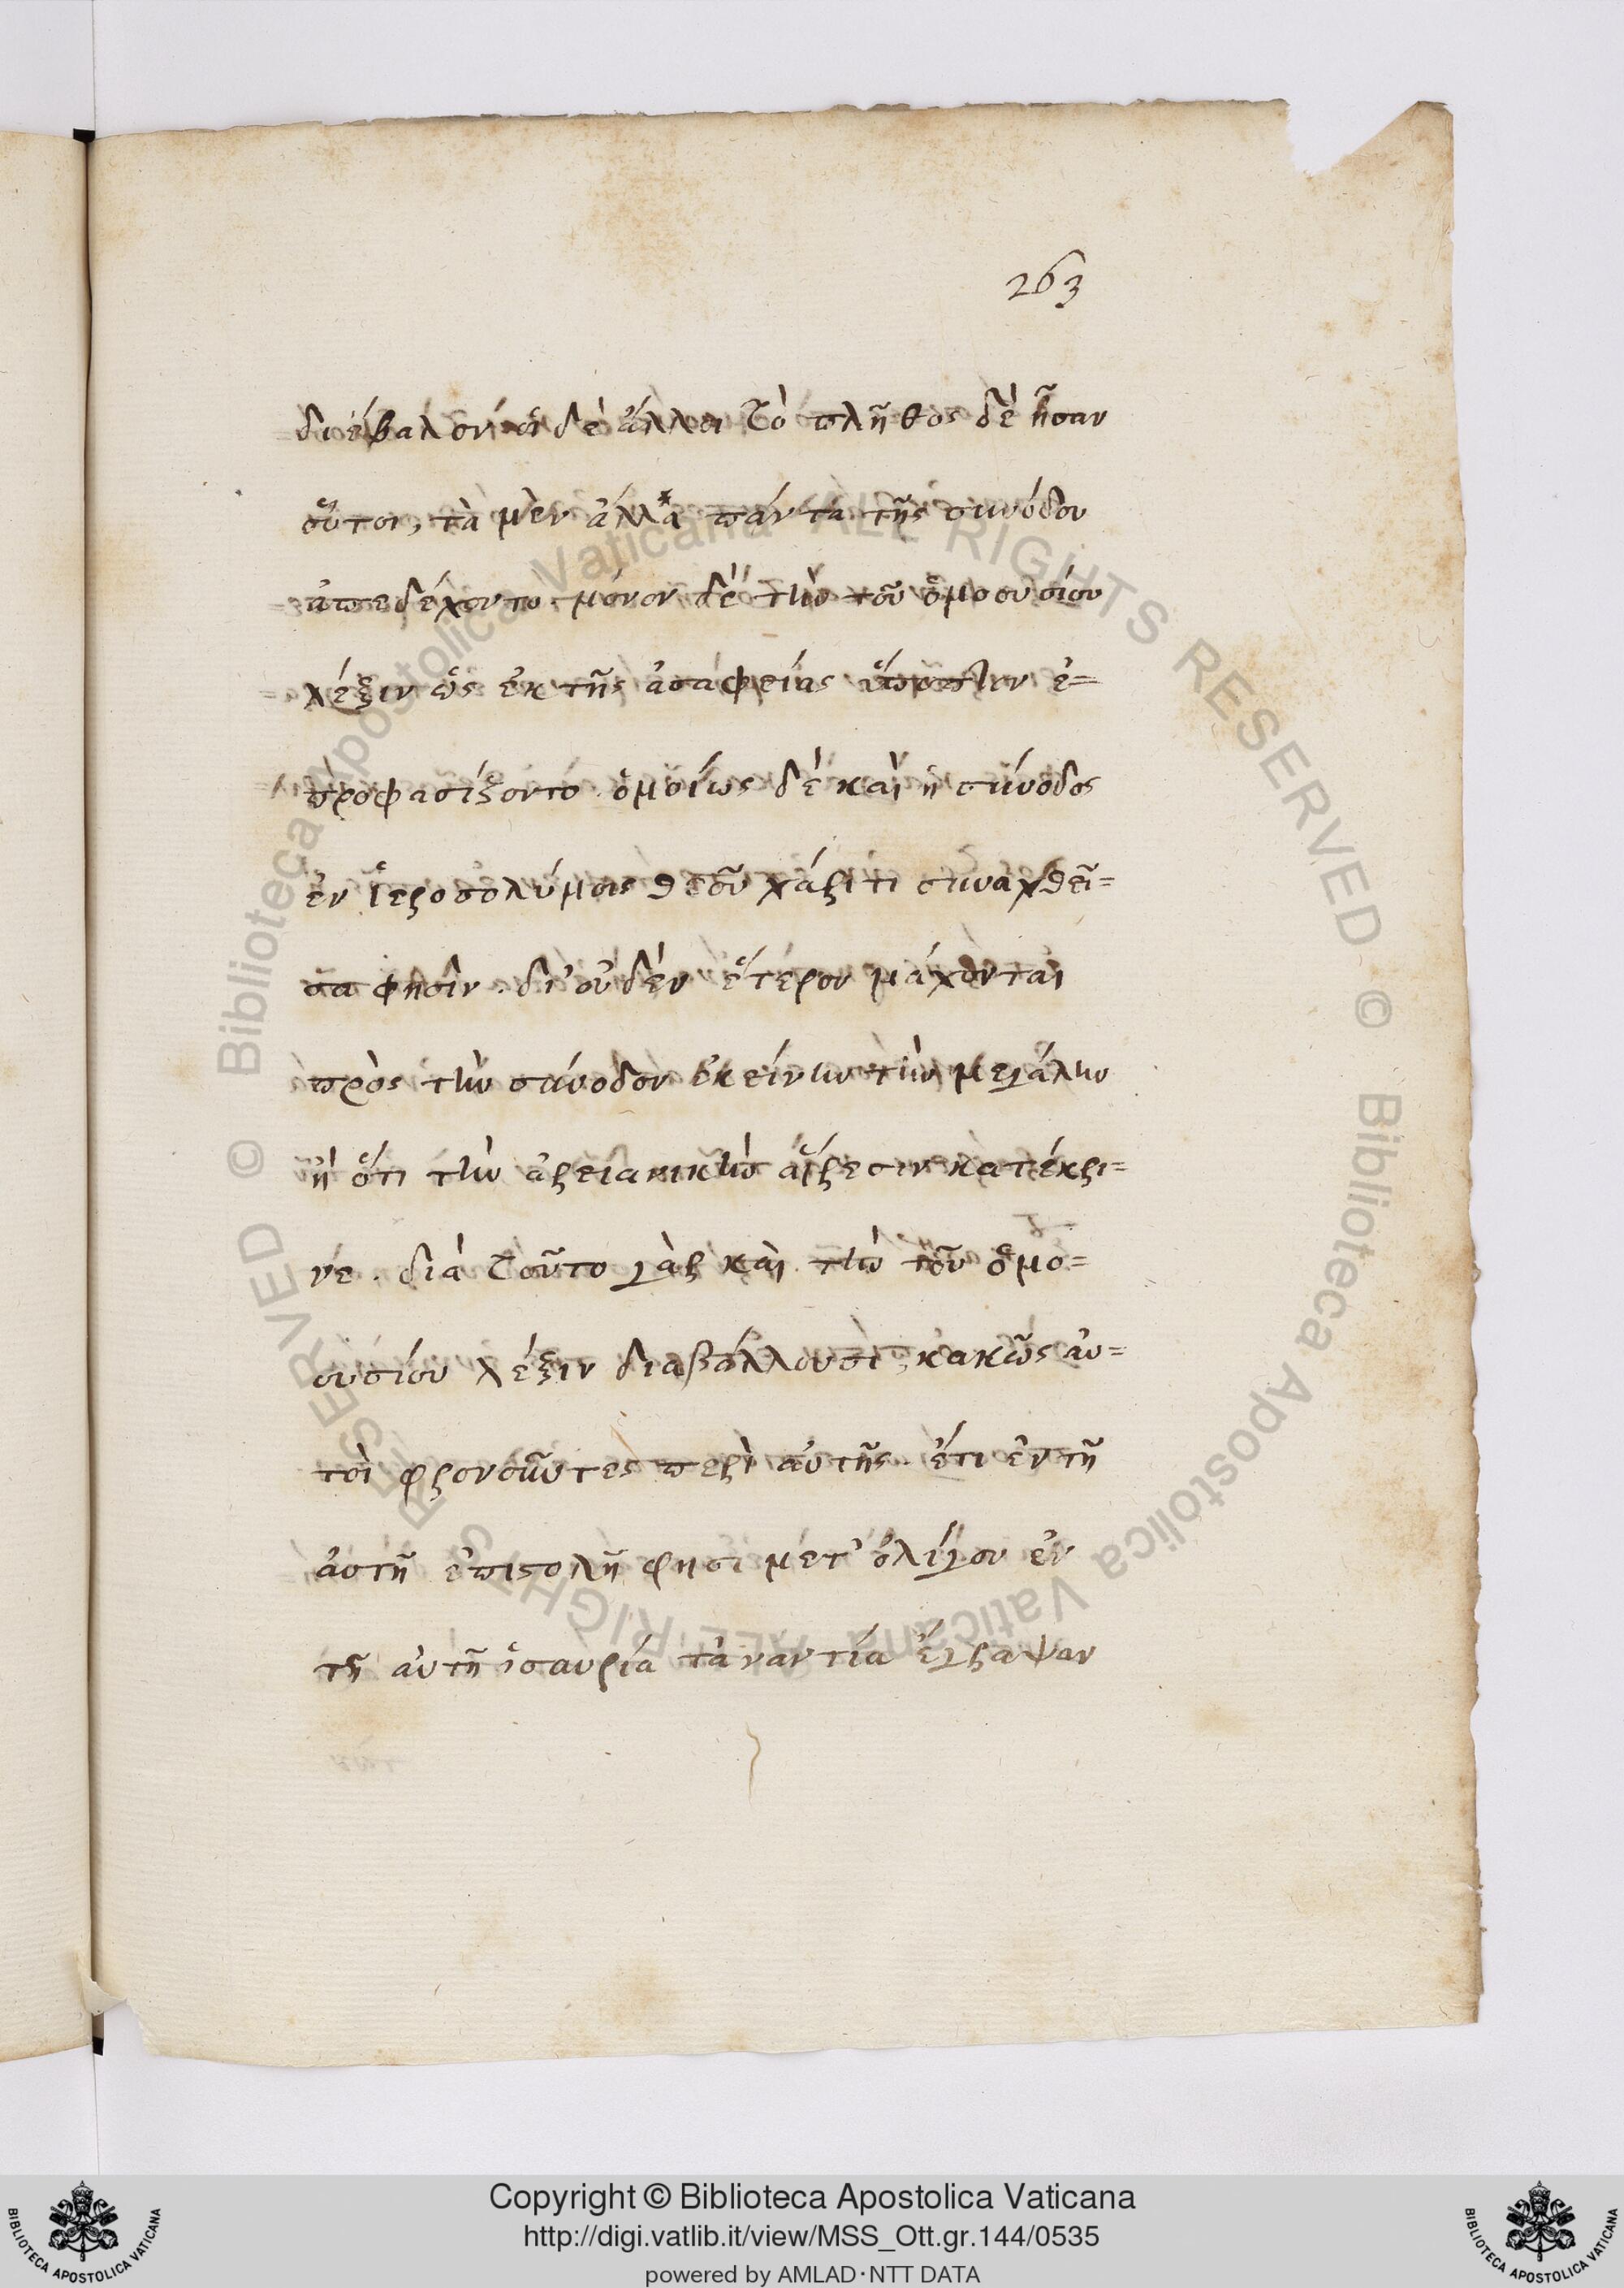 263
διέβαλον· οἱ δὲ ἄλλοι τὸ πλῆθος δὲ ἦσαν
οὗτοι, τὰ μὲν ἄλλα πάντα τῆς συνόδου
ἀπεδέχοντο· μόνον δὲ τὴν τοῦ ὁμοουσίου
λέξιν ὡς ἐκ τῆς ἀσαφείας ὕποπτον ἐ=
προφασίζοντο· ὁμοίως δὲ καὶ ἡ σύνοδος
ἐν ἱεροσολύμοις θεοῦ χάριτι συναχθεῖ=
σα φησίν· δι' οὐδὲν ἕτερον μάχονται
πρὸς τὴν σύνοδον ἐκείνην τὴν μεγάλην
ἢ ὅτι τὴν ἀρειανικὴν αἵρεσιν κατέκρι=
νε· διὰ τοῦτο γὰρ καὶ τὴν τοῦ ὁμο=
ουσίου λέξιν διαβάλλουσι, κακῶς αὐ=
τοὶ φρονοῦντες περὶ αὐτῆς· ἔτι ἐν τῇ
αὐτῇ ἐπιστολῇ φησι μετ' ὀλίγον ἐν
τῇ αὐτῇ ἰσαυρία τἀναντία ἔγραψαν
© Biblioteca Apostolica Vaticana ALL RIGHTS RESERVED © Biblioteca Apostolica Vaticana ALL RIGHTS RESERVED
Copyright © Biblioteca Apostolica Vaticana
http://digi.vatlib.it/view/MSS_Ott.gr.144/0535
powered by AMLAD·NTT DATA
BIBLIOTECA APOSTOLICA VATICANA
BIBLIOTECA APOSTOLICA VATICANA